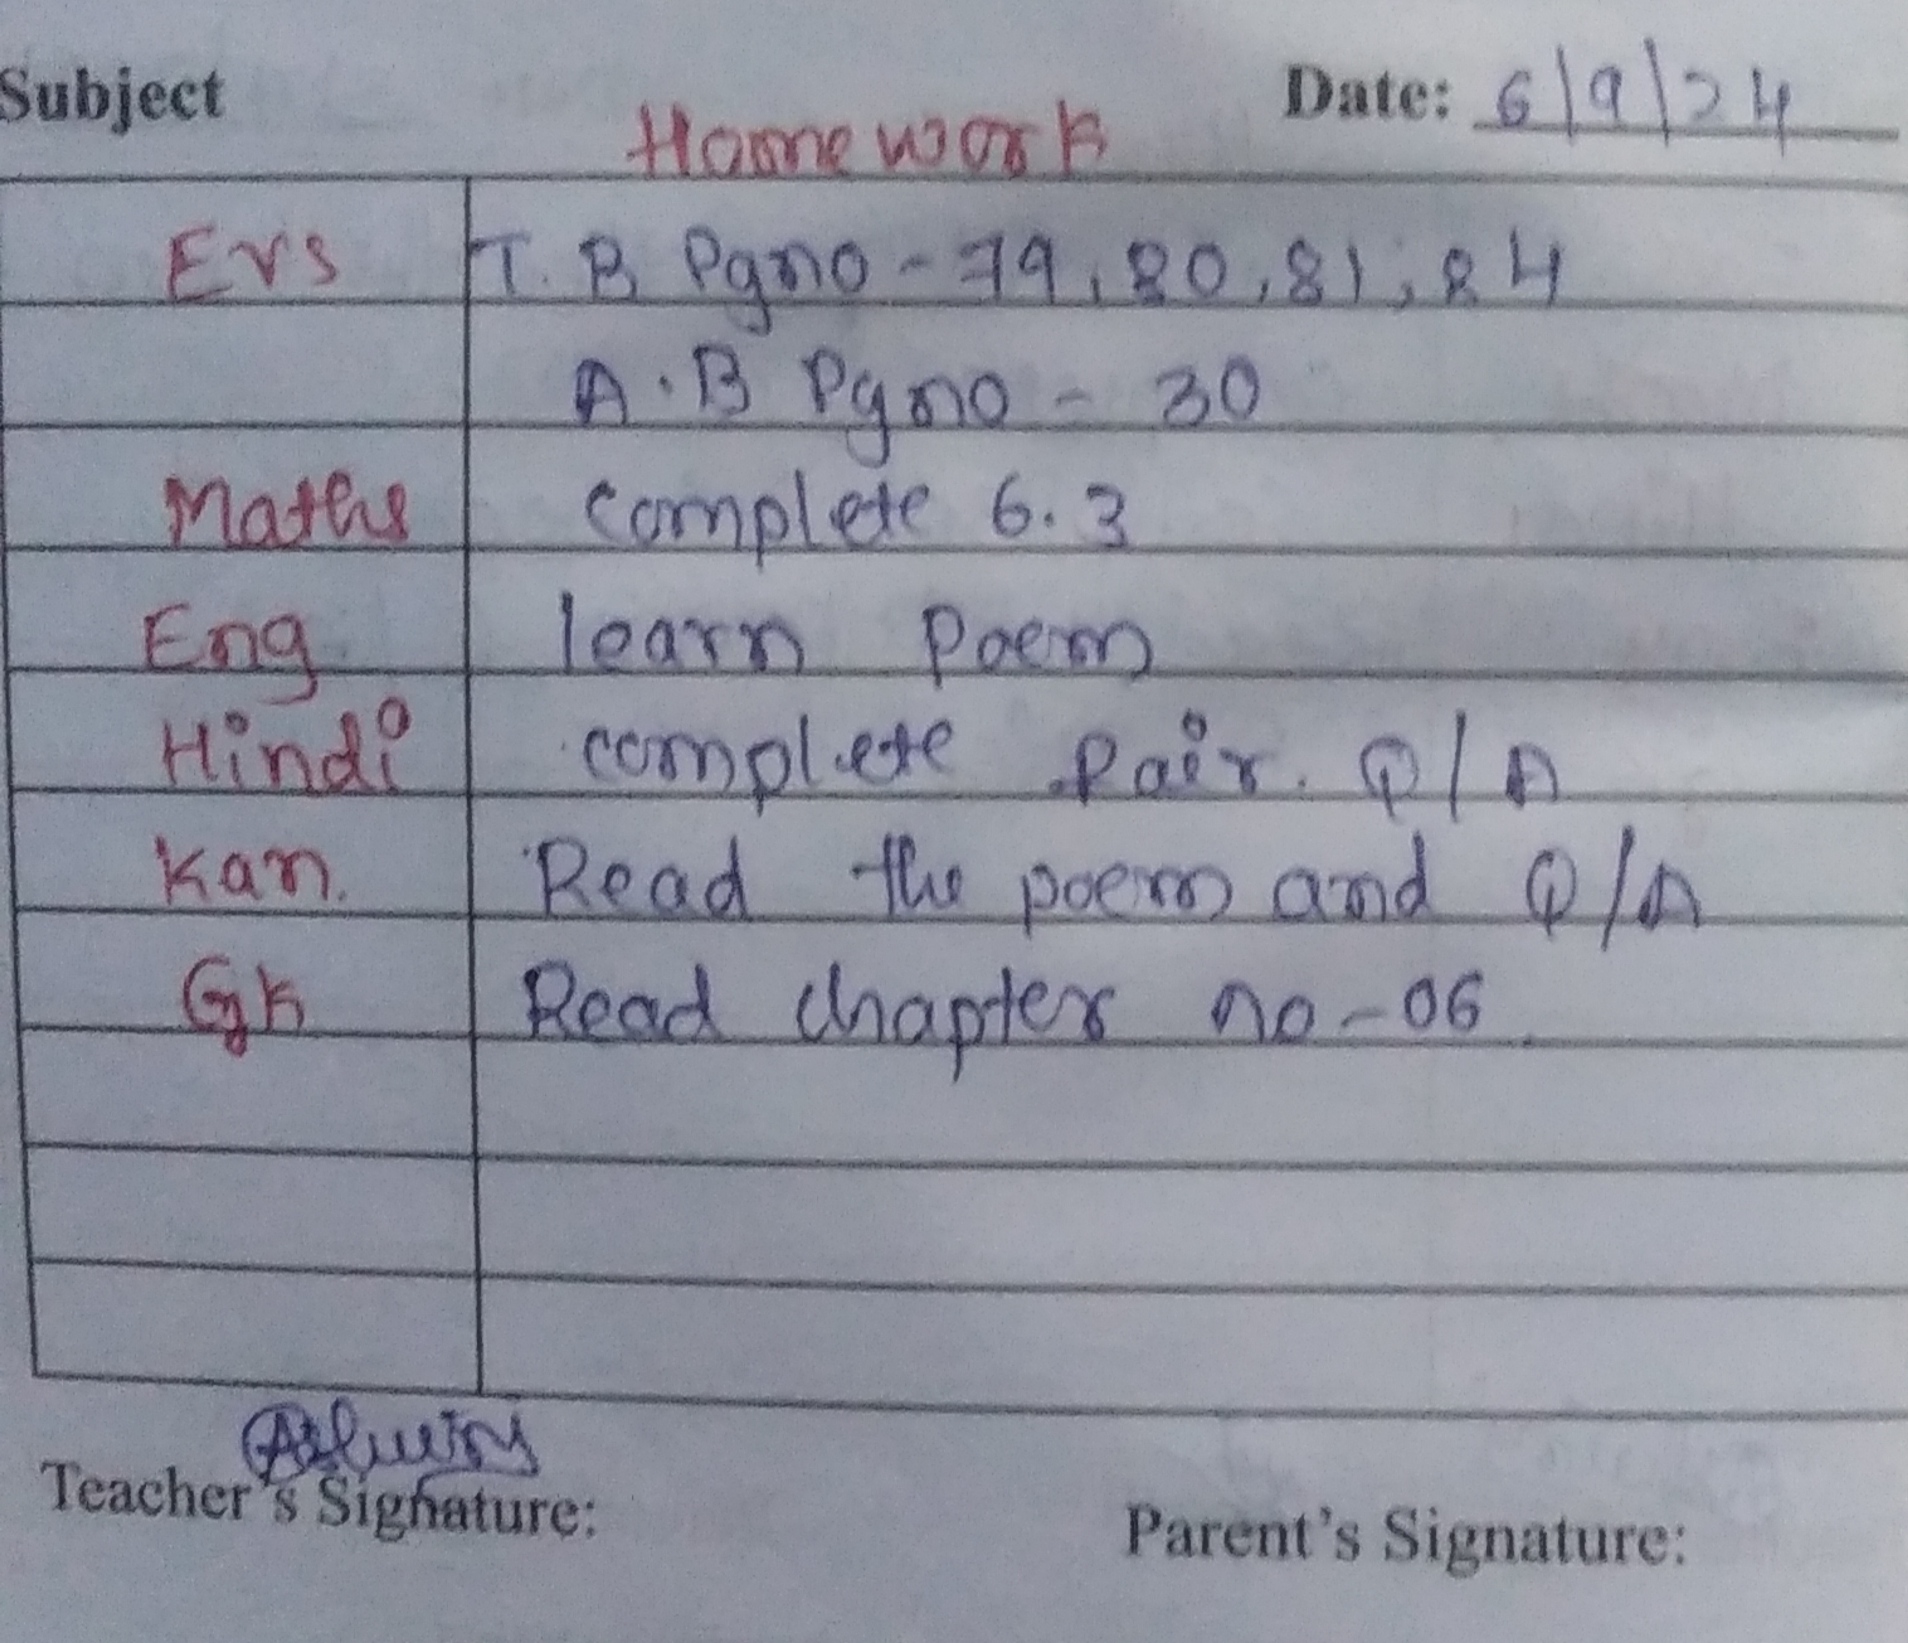 Subject
Date: 6/9/24
Homework
Evs T.B Pgno - 79, 80, 81, 84
A.B Pgno - 30
Maths complete 6.3
Eng learn Poem
Hindi complete Pair. Q/A
Kan. Read the poem and Q/A
Gk Read chapter no-06.
Teacher's Signature:
Parent's Signature: